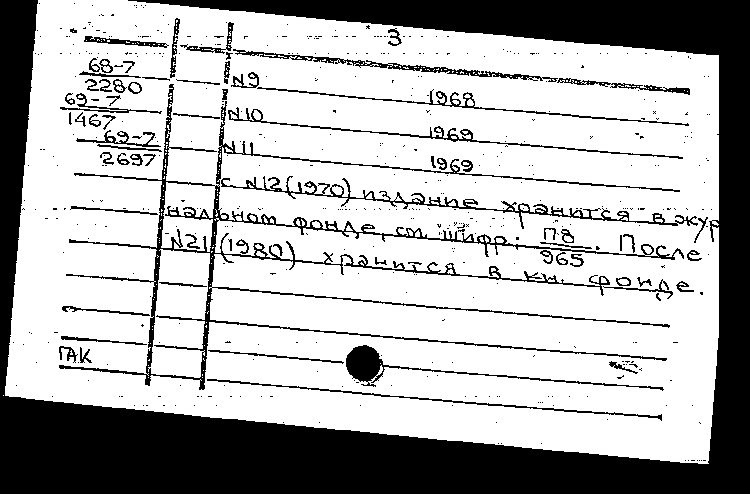 3
68-7
2280 N9 1968
69-7
1467 N10 1969
69-7
2697 N11 1969
с N12 (1970) издание хранится в жур
нальном фонде, см. шифр: П8/965. После
N21 (1980) хранится в кн. фонде.
ГАК